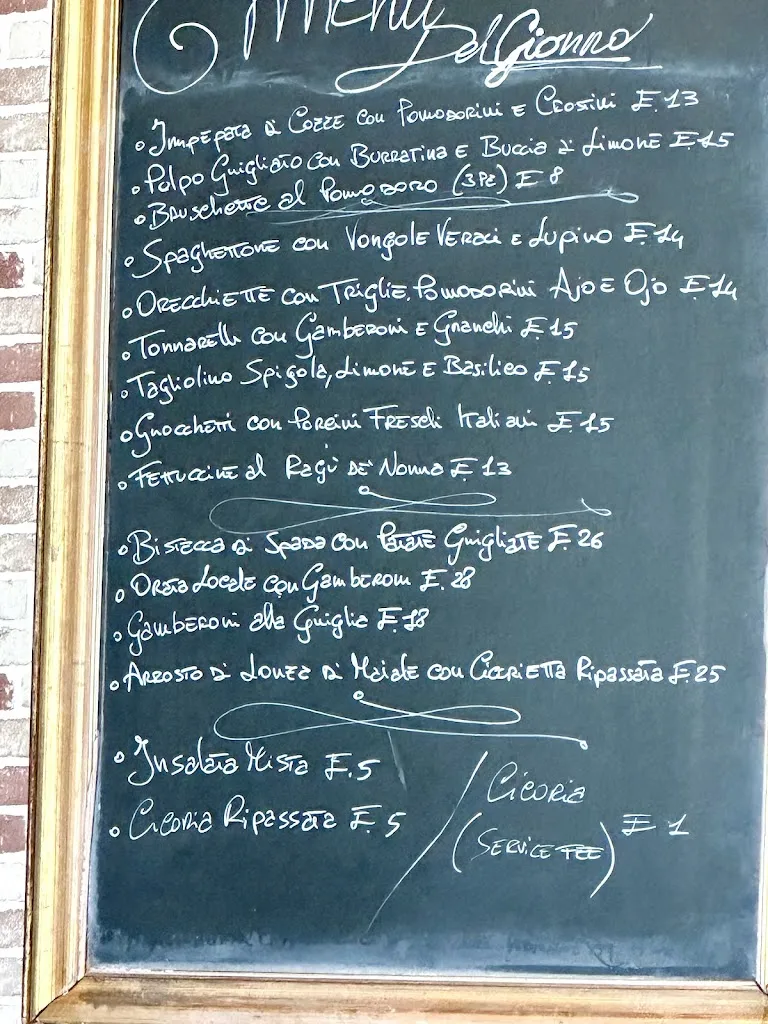 Menù Del Giorno
Impepata di Cozze con Pomodorini e Crostini E.13
Polpo Grigliato con Burratina e Buccia di Limone E.15
Bruschette al Pomodoro (3Pz) E 8
Spaghettone con Vongole Veraci e Lupino E.14
Orecchiette con Triglie, Pomodorini Ajo e Ojo E.14
Tonnarelli con Gamberoni e Granchi E.15
Tagliolino Spigola, Limone e Basilico E.15
Gnocchetti con Porcini Freschi Italiani E.15
Fettuccine al Ragù de' Nonna E.13
Bistecca di Spada con Patate Grigliate E.26
Orata Locale con Gamberoni E.28
Gamberoni alla Griglia E.18
Arrosto di Lonza di Maiale con Cicorietta Ripassata E.25
Insalata Mista E.5
Cicoria Ripassata E.5
Cicoria
(Service Fee) E 1